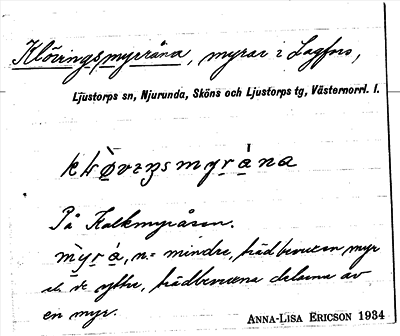 Klöringsmyrråna, myrar i Lagfors,
Ljustorps sn, Njurunda, Sköns och Ljustorps tg, Västernorrl. l.
På Kalkmyråsen.
myrå, n. = mindre, trädbevuxen myr
el. de yttre, trädbevuxna delarna av
en myr.
ANNA-LISA ERICSON 1934